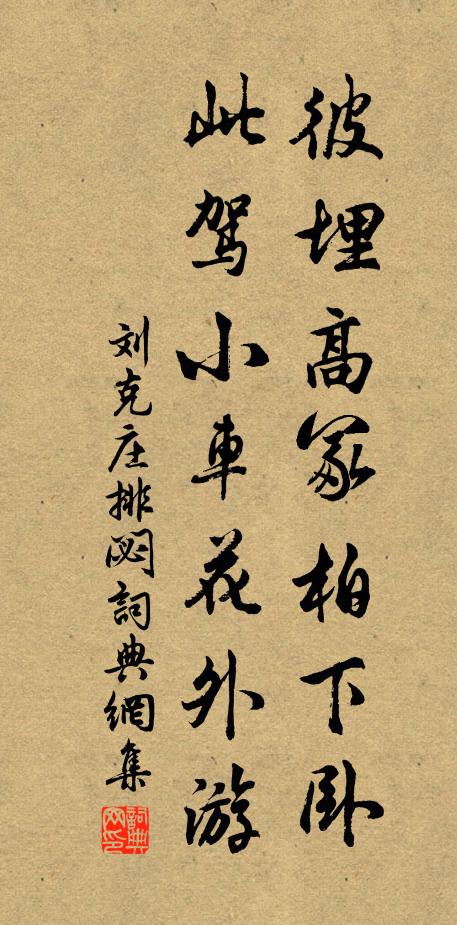 彼埋高冢柏下卧
此驾小車花外游
刘克庄排闷詞典網集
詞典網印